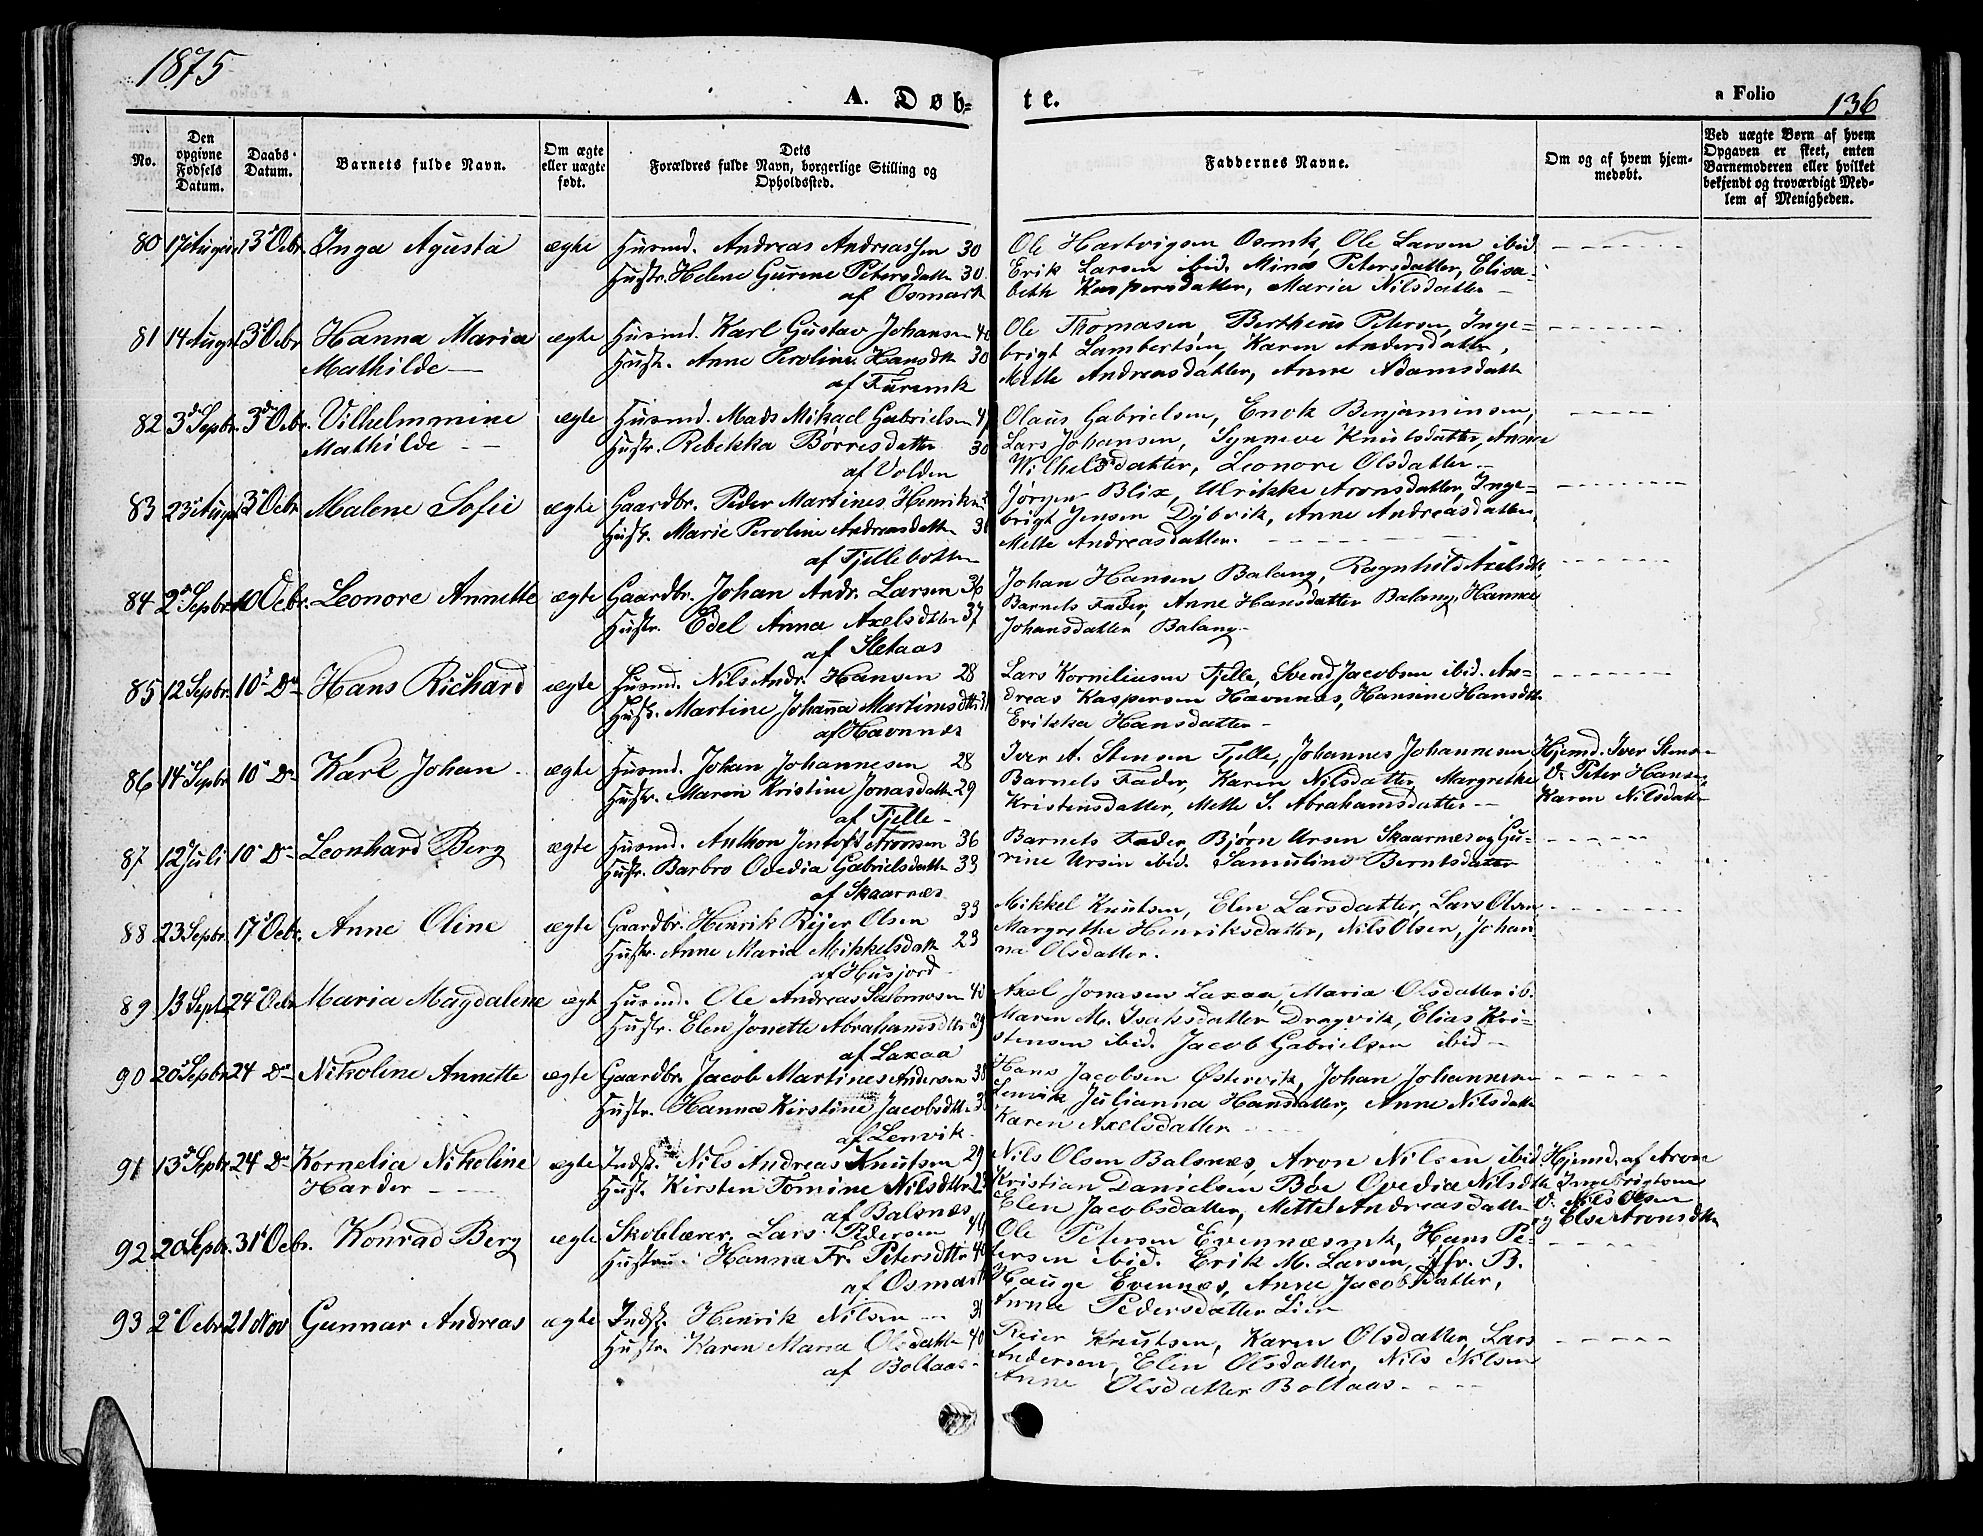 1875
A. Döb-
te.
a Folio 136
No.
Den opgivne Fødsels Datum.
Daabs-Datum.
Barnets fulde Navn.
Om ægte eller uægte født.
Dets Forældres fulde Navn, borgerlige Stilling og Opholdssted.
Faddernes Navne.
Om og af hvem hjemmedøbt.
Ved uægte Børn af hvem Opgaven er skeet, enten Barnemoderen eller hvilket bekjendt og troværdigt Medlem af Menigheden.
80 17 August 3 Octbr. Inga Agusta ægte Husmd. Andreas Andreassen 30
Hustr. Helene Gurine Petersdatte 30
af Osmark
Ole Hartvigsen Osmk, Ole Larsen ibid.
Erik Larsen ibid. Mina Petersdatter, Elisa-
beth Kaspersdatter, Maria Nilsdatter
81 14 Augst 3 Octbr Hanna Maria ægte Husmd. Karl Gustav Johansen 40
Mathilde Hustr. Anne Peroline Hansdtr 30
af Furemk
Ole Thomasen, Bertheus Petersen, Inge-
brigt Lambertsen, Karen Andersdatter,
Mette Andreasdatter, Anne Adamsdatt
82 3d Septbr. 3d Octbr. Vilhelmmine ægte Husmd. Mads Mikael Gabrielsen 41
Mathilde Hustr. Rebekka Børresdatter 30
af Volden
Olaus Gabrielsen, Enok Benjaminsen,
Lars Johansen, Synneve Knutsdatter, Anna
Wilhelsdatter, Leonore Olsdatter
83 23 Augst 3 Octbr Malene Sofie ægte Gaardbr. Peder Martines Henriksen
Hustr. Marie Peroline Andreasdatte 31
af Fjellebotten
Jørgen Blix, Ulrikke Aronsdatter, Inge-
brigt Jensen Dybvik, Anne Andreasdatter,
Mette Andreasdatter.
84 2 Septbr. 10 Octbr. Leonore Annette ægte Gaardbr. Johan Andr. Larsen 36
Hustr. Edel Anna Axelsdtter 37
af Stetaas
Johan Hansen Balang, Ragnhild Axelsdtr,
Barnets Fader, Anne Hansdatter Balang, Hanna
Johansdatter Balang
85 12 Septbr. 10 Do Hans Richard ægte Husmd. Nils Andr. Hansen 28
Hustr. Martine Johanna Martinsdttr 31
af Havnnæs
Lars Korneliusen Fjelle, Svend Jacobsen ibid. An-
dreas Kaspersen Havnnæs, Hansine Hansdtr
Erikka Hansdatter
86 14 Septbr 10 Do Karl Johan ægte Husmd. Johan Johannesen 28
Hustr. Maren Kristine Jonasdatte 29
af Fjelle
Iver A. Stensen Fjelle, Johannes Johannesen
Barnets Fader, Karen Nilsdatter, Margrethe
Kristensdatter, Mette S. Abrahamsdatter
Hjemd. Iver Stensen
V. Peter Hansen
Karen Nilsdatte
87 12 Juli 10 Do Leonhard Berg ægte Husmd. Anthon Jentoft Aronsen 36
Hustr. Barbro Ovedia Gabrielsdatte 33
af Skaarnæs
Barnets Fader, Bjørn Ursin Skaarnæs og Gu-
rine Ursin ibid. Samueline Berntsdatter
88 23 Septbr. 17 Octbr. Anne Oline ægte Gaardbr. Henrik Reyer Olsen 33
Hustr. Anne Maria Mikkelsdatt 23
af Husjord
Mikkel Knutsen, Elen Larsdatter, Lars Olsen
Margrethe Henriksdatter, Nils Olsen, Johan-
na Olsdatter.
89 13 Sept. 24 Octbr Maria Magdalene ægt Husmd. Ole Andreas Salomosen 40
Hustr. Elen Jonette Abrahamsdttr 39
af Laxaa
Axel Jonasen Laxaa, Maria Olsdatter ib.
Maren M. Isaksdatter Dragvik, Elias Kri-
stensen ibid. Jacob Gabrielsen ibid
90 20 Septbr. 24 Do Nikoline Annette ægte Gaardbr. Jacob Martines Andersen 38
Hustr. Hanna Kirstine Jacobsdttr
af Lenvik
Hans Jacobsen Østervik, Johan Johannesen
Lenvik, Julianna Hansdatter, Anne Nilsdatte
Karen Axelsdatter
91 13d Septbr. 24 Do Kornelia Nikoline ægte Indst. Nils Andreas Knutsen 29
Harder Hustr. Kirsten Tomine Nilsdttr 23
af Balsnæs
Nils Olsen Balsnæs, Aron Nilsen ibid.
Kristian Danielsen Bøe, Ovedia Nilsdtr
Elen Jacobsdatter, Mette Andreasdatter
Hjemd. af Aron
Ingebrigtsen
V. Nils Olsen
og Else Aronsdttr
92 20 Septbr. 31 Octbr. Konrad Berg ægte Skolelærer. Lars Pedersen 44
Hustru. Hanna Fr. Petersdttr 40
af Osmark
Ole Petersen Evennæsmk, Hans Pe-
tersen ibid. Erik M. Larsen, Jfr. B.
Hauge Evennæs, Anne Jacobsdatter,
Anna Pedersdatter Lien
93 2 Octbr 21 Nov Gunnar Andreas ægte Indst. Henrik Nilsen 31
Hustr. Karen Maria Olsdatte 40
af Boltaas
Reier Knutsen, Karen Olsdatter, Lars
Andersen, Elin Olsdatter, Nils Nilsen
Anne Olsdatter Boltaas